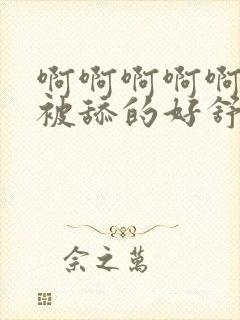 啊啊啊啊啊
被舔的好舒
余之萬